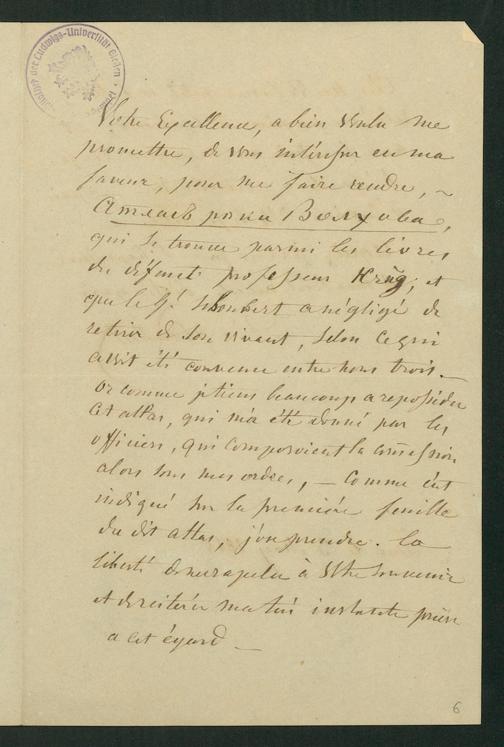 der Ludwigs-Universität Gießen
Votre Excellence, a bien voulu me
promettre, de vous intéresser en ma
faveur, pour me faire rendre, ~
Атласъ рѣки Волхова,
qui se trouve parmi les livres
du défunt professeur Krug; et
que le Sr. Schubert a négligé de
retirer de son vivant, selon ce qui
avoit été convenu entre nous trois. _
Or comme je tiens beaucoup a reposséder
cet atlas, qui m'a été donné par les
officiers, qui composoient la comission
alors sous mes ordres, – comme c'est
indiqué sur la première feuille
du dit atlas, j'ose prendre la
liberté de me rapeler à Votre souvenir
et de réitérer ma très instante prière
a cet égard _
6